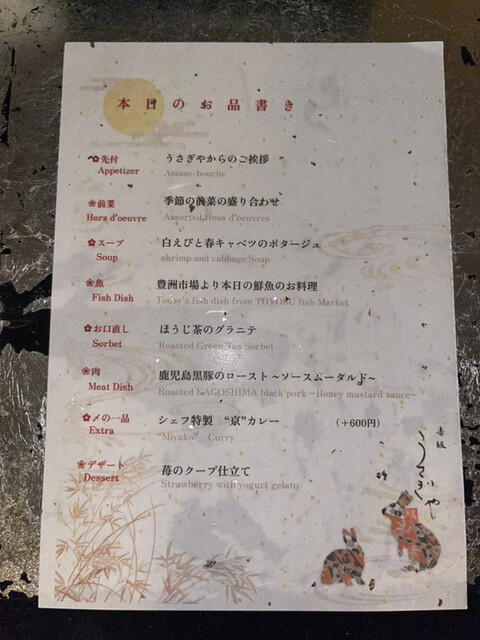 本日のお品書き
✿先付 うさぎやからのご挨拶
Appetizer Amuse-bouche
❀前菜 季節の前菜の盛り合わせ
Hors d'oeuvre Assorted Hous d'oeuvres
✿スープ 白えびと春キャベツのポタージュ
Soup shrimp and cabbage Soup
❀魚 豊洲市場より本日の鮮魚のお料理
Fish Dish Today's fish dish from TOYOSU fish Market
✿お口直し ほうじ茶のグラニテ
Sorbet Roasted Green Tea Sorbet
❀肉 鹿児島黒豚のロースト～ソースムータルド～
Meat Dish Roasted KAGOSHIMA black pork ~Honey mustard sauce~
✿〆の一品 シェフ特製 “京”カレー (＋600円)
Extra “Miyako” Curry
❀デザート 苺のクープ仕立て
Dessert Strawberry with yogurt gelato
うさぎや